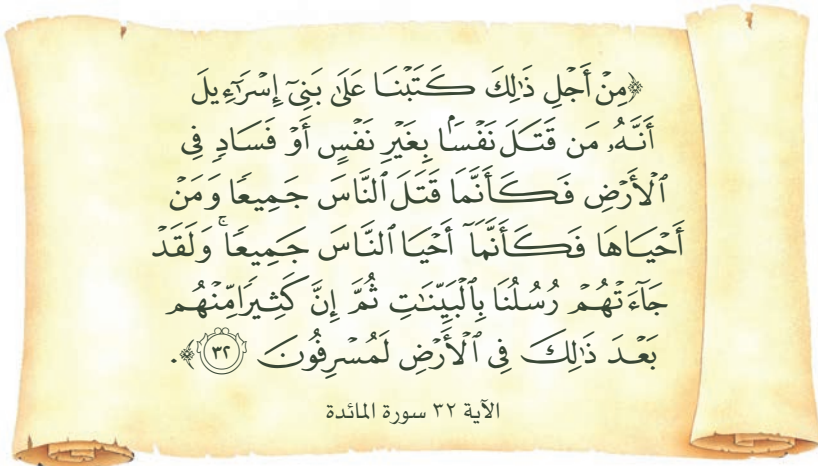 ﴿مِنْ أَجْلِ ذَٰلِكَ كَتَبْنَا عَلَىٰ بَنِىٓ إِسْرَٰٓءِيلَ
أَنَّهُۥ مَن قَتَلَ نَفْسًۢا بِغَيْرِ نَفْسٍ أَوْ فَسَادٍ فِى
ٱلْأَرْضِ فَكَأَنَّمَا قَتَلَ ٱلنَّاسَ جَمِيعًا وَمَنْ
أَحْيَاهَا فَكَأَنَّمَآ أَحْيَا ٱلنَّاسَ جَمِيعًا ۚ وَلَقَدْ
جَآءَتْهُمْ رُسُلُنَا بِٱلْبَيِّنَٰتِ ثُمَّ إِنَّ كَثِيرًا مِّنْهُم
بَعْدَ ذَٰلِكَ فِى ٱلْأَرْضِ لَمُسْرِفُونَ ٣٢﴾.
الآية ٣٢ سورة المائدة